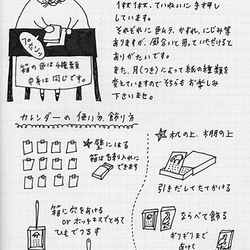 1枚1枚、ていねいに手押し
しています。
それぞれに色ムラ、かすれ、にじみ等
ありますが、風合いと思って頂だけると
ありがたいです。
また、月(つき)によって紙の種類を
変えていますのでそちらもお楽しみ
下さいませ。
ぺたんっ
箱の色は4種類
中身は同じです。
カレンダーの使い方、飾り方
★壁にはる
箱は名刺入れに
できます
★机の上、本棚の上
引きだしてたてかける
箱に穴をあける
orホッチキスでとめて
ひもでつるす
ならべて飾る
ギリギリまで
あけて